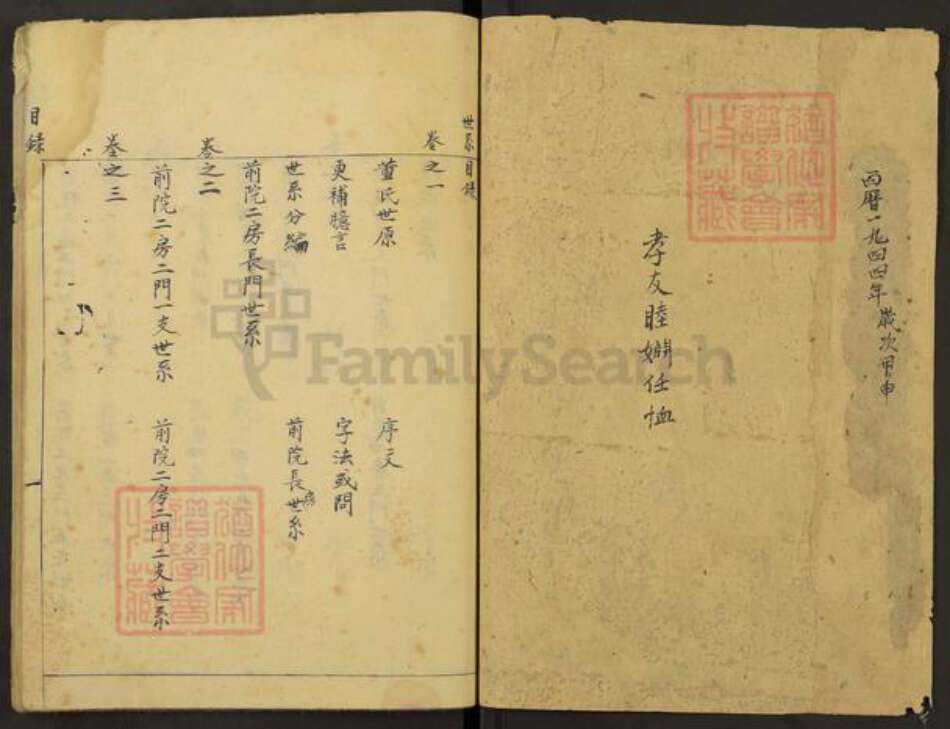 西曆一九四四年歲次甲申
孝友睦婣任恤
世系目錄
卷之一
董氏世原 序文
更補臆言 字法或問
世系分編 前院長房世系
前院二房長門世系
卷之二
前院二房二門一支世系 前院二房二門二支世系
卷之三
目錄
一
FamilySearch